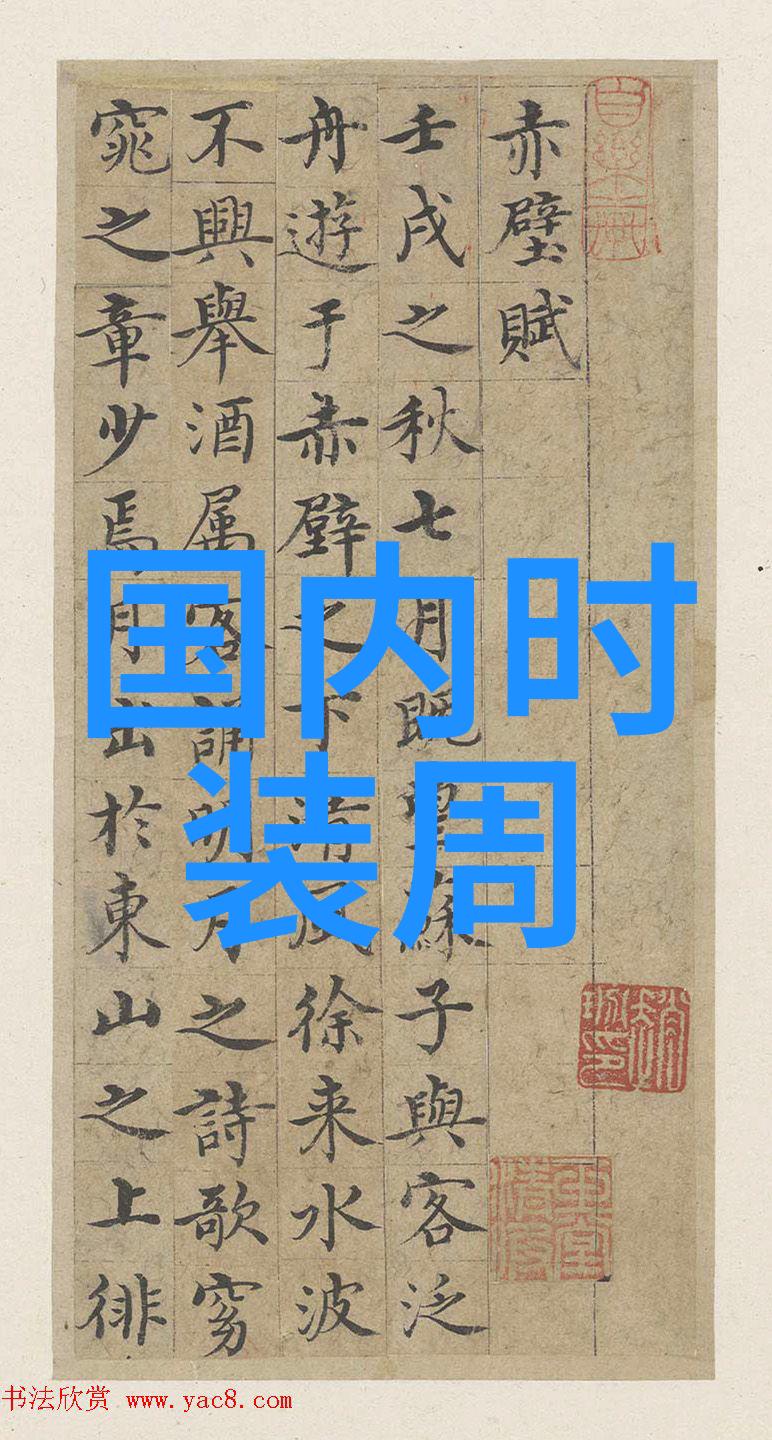 赤壁賦
壬戌之秋七月既望蘇子與客泛
舟遊于赤壁之下清風徐来水波
不興舉酒属客誦明月之詩歌窈
窕之章少焉月出於東山之上徘
国内时
装周
书法欣赏 www.yac8.com